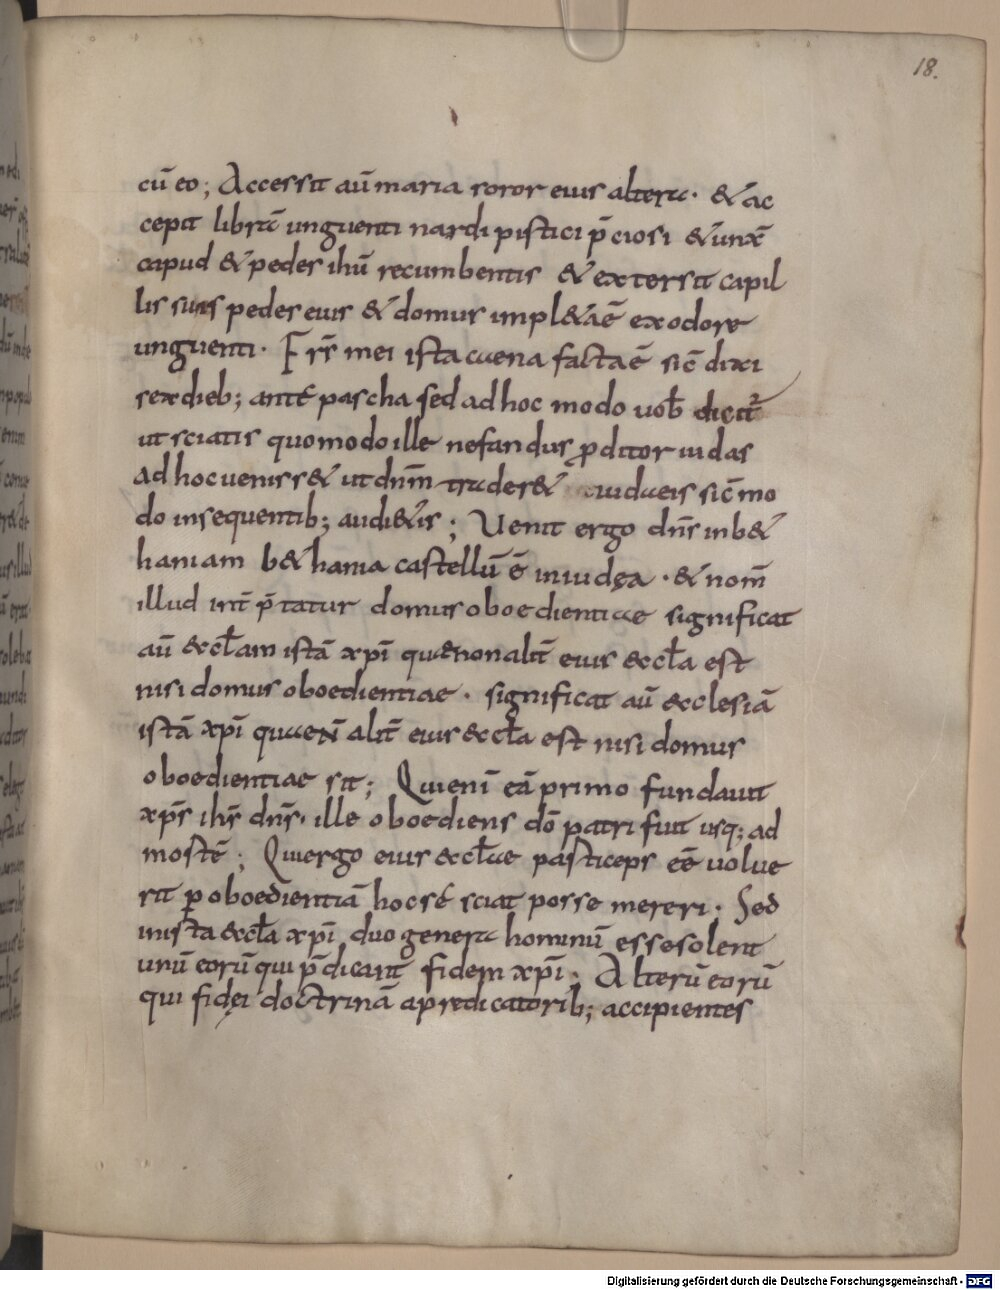 18.
cū eo; Accessit aū maria soror eius altera. & ac
cepit librā unguenti nardi pistici p̄ciosi & unx̄
capud & pedes ihū recumbentis & extersit capil
lis suis pedes eius & domus impl&a ē ex odore
unguenti. Frs̄ mei ista caena facta ē sic̄ dixi
sex dieb; ante pascha sed ad hoc modo uob̄ dicit̄
ut sciatis quomodo ille nefandus p̱ditor iudas
ad hoc ueniss& ut dnm̄ trader& iudaeis sic̄ mo
do in sequentib; audi&is; Uenit ergo dn̄s in b&
haniam b&hania castellū ē in iudęa. & nom̄
illud int̄ p̄tatur domus oboedientiae significat
aū &cl̄am istā xp̄i quae non alit̄ eius &cl̄a est
nisi domus oboedientiae. significat aū &clesiā
istā xp̄i quae n̄ alit̄ eius &cl̄a est nisi domus
oboedientiae sit; Qui enī eā primo fundauit
xp̄s ihs̄ dn̄s. ille oboediens dō patri fuit usq; ad
mostē; Qui ergo eius &cl̄ae pasticeps eē uolue
rit p̱ oboedientiā hoc sé sciat posse mereri. Sed
in ista &cl̄a xp̄i duo genera hominū esse solent
unū eorū qui p̄dicant fidem xp̄i; Alterū eorū
qui fidęi doctrinā a predicatorib; accipientes
Digitalisierung gefördert durch die Deutsche Forschungsgemeinschaft - DFG